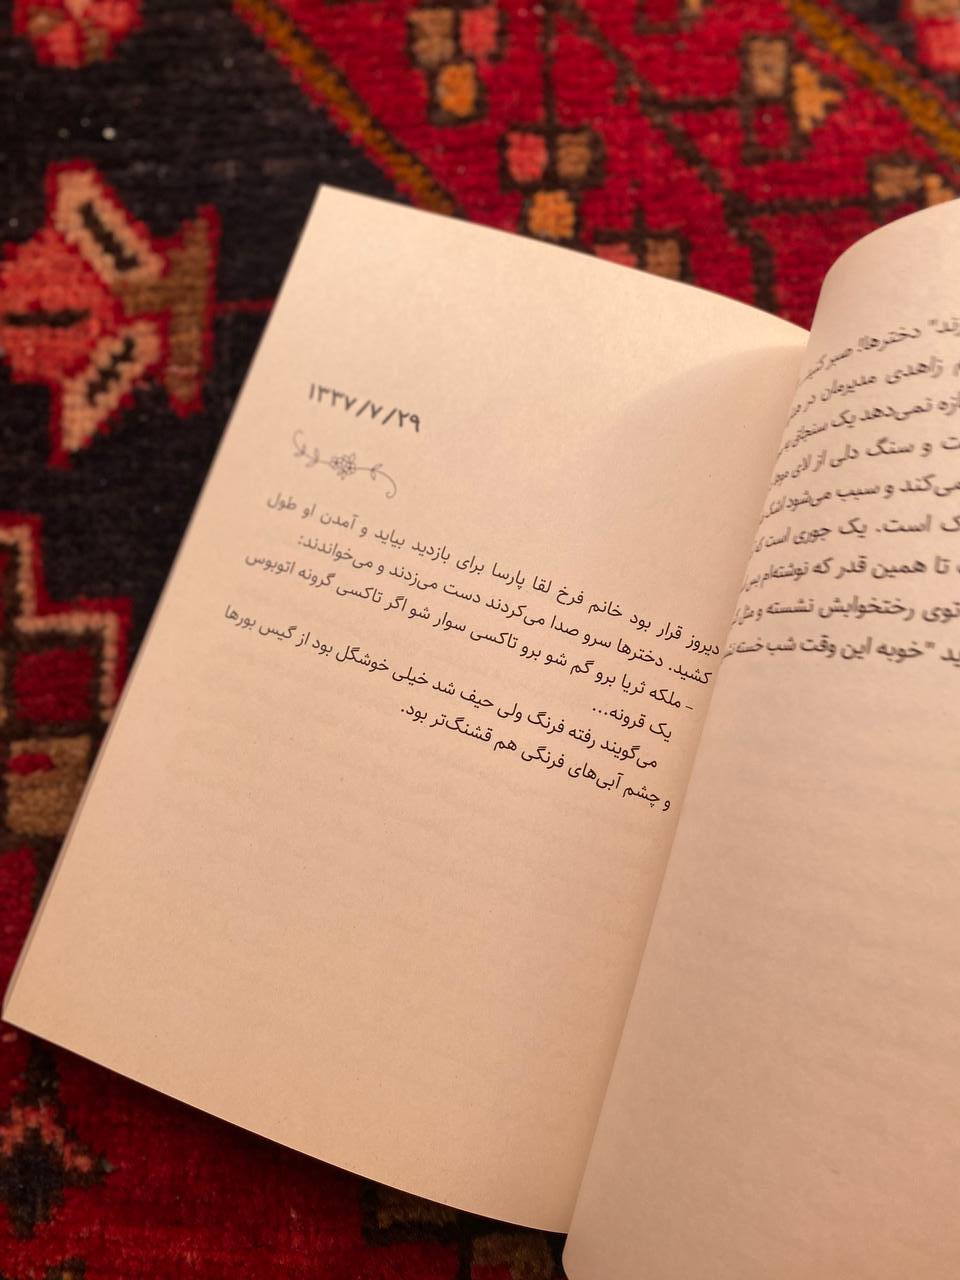 زند" دخترها! صبر کنید
زاهدی مدیرمان در
نمی‌دهد یک سنجاق
و سنگ دلی از لای
می‌کند و سبب می‌شود اشک
است. یک جوری است که
تا همین قدر که نوشته‌ام پس
توی رختخوابش نشسته و مثل
"خوبه این وقت شب خسته
۱۳۳۷/۷/۲۹
دیروز قرار بود خانم فرخ لقا پارسا برای بازدید بیاید و آمدن او طول
کشید. دخترها سرو صدا می‌کردند دست می‌زدند و می‌خواندند:
- ملکه ثریا برو گم شو برو تاکسی سوار شو اگر تاکسی گرونه اتوبوس
یک قرونه...
می‌گویند رفته فرنگ ولی حیف شد خیلی خوشگل بود از گیس بورها
و چشم آبی‌های فرنگی هم قشنگ‌تر بود.